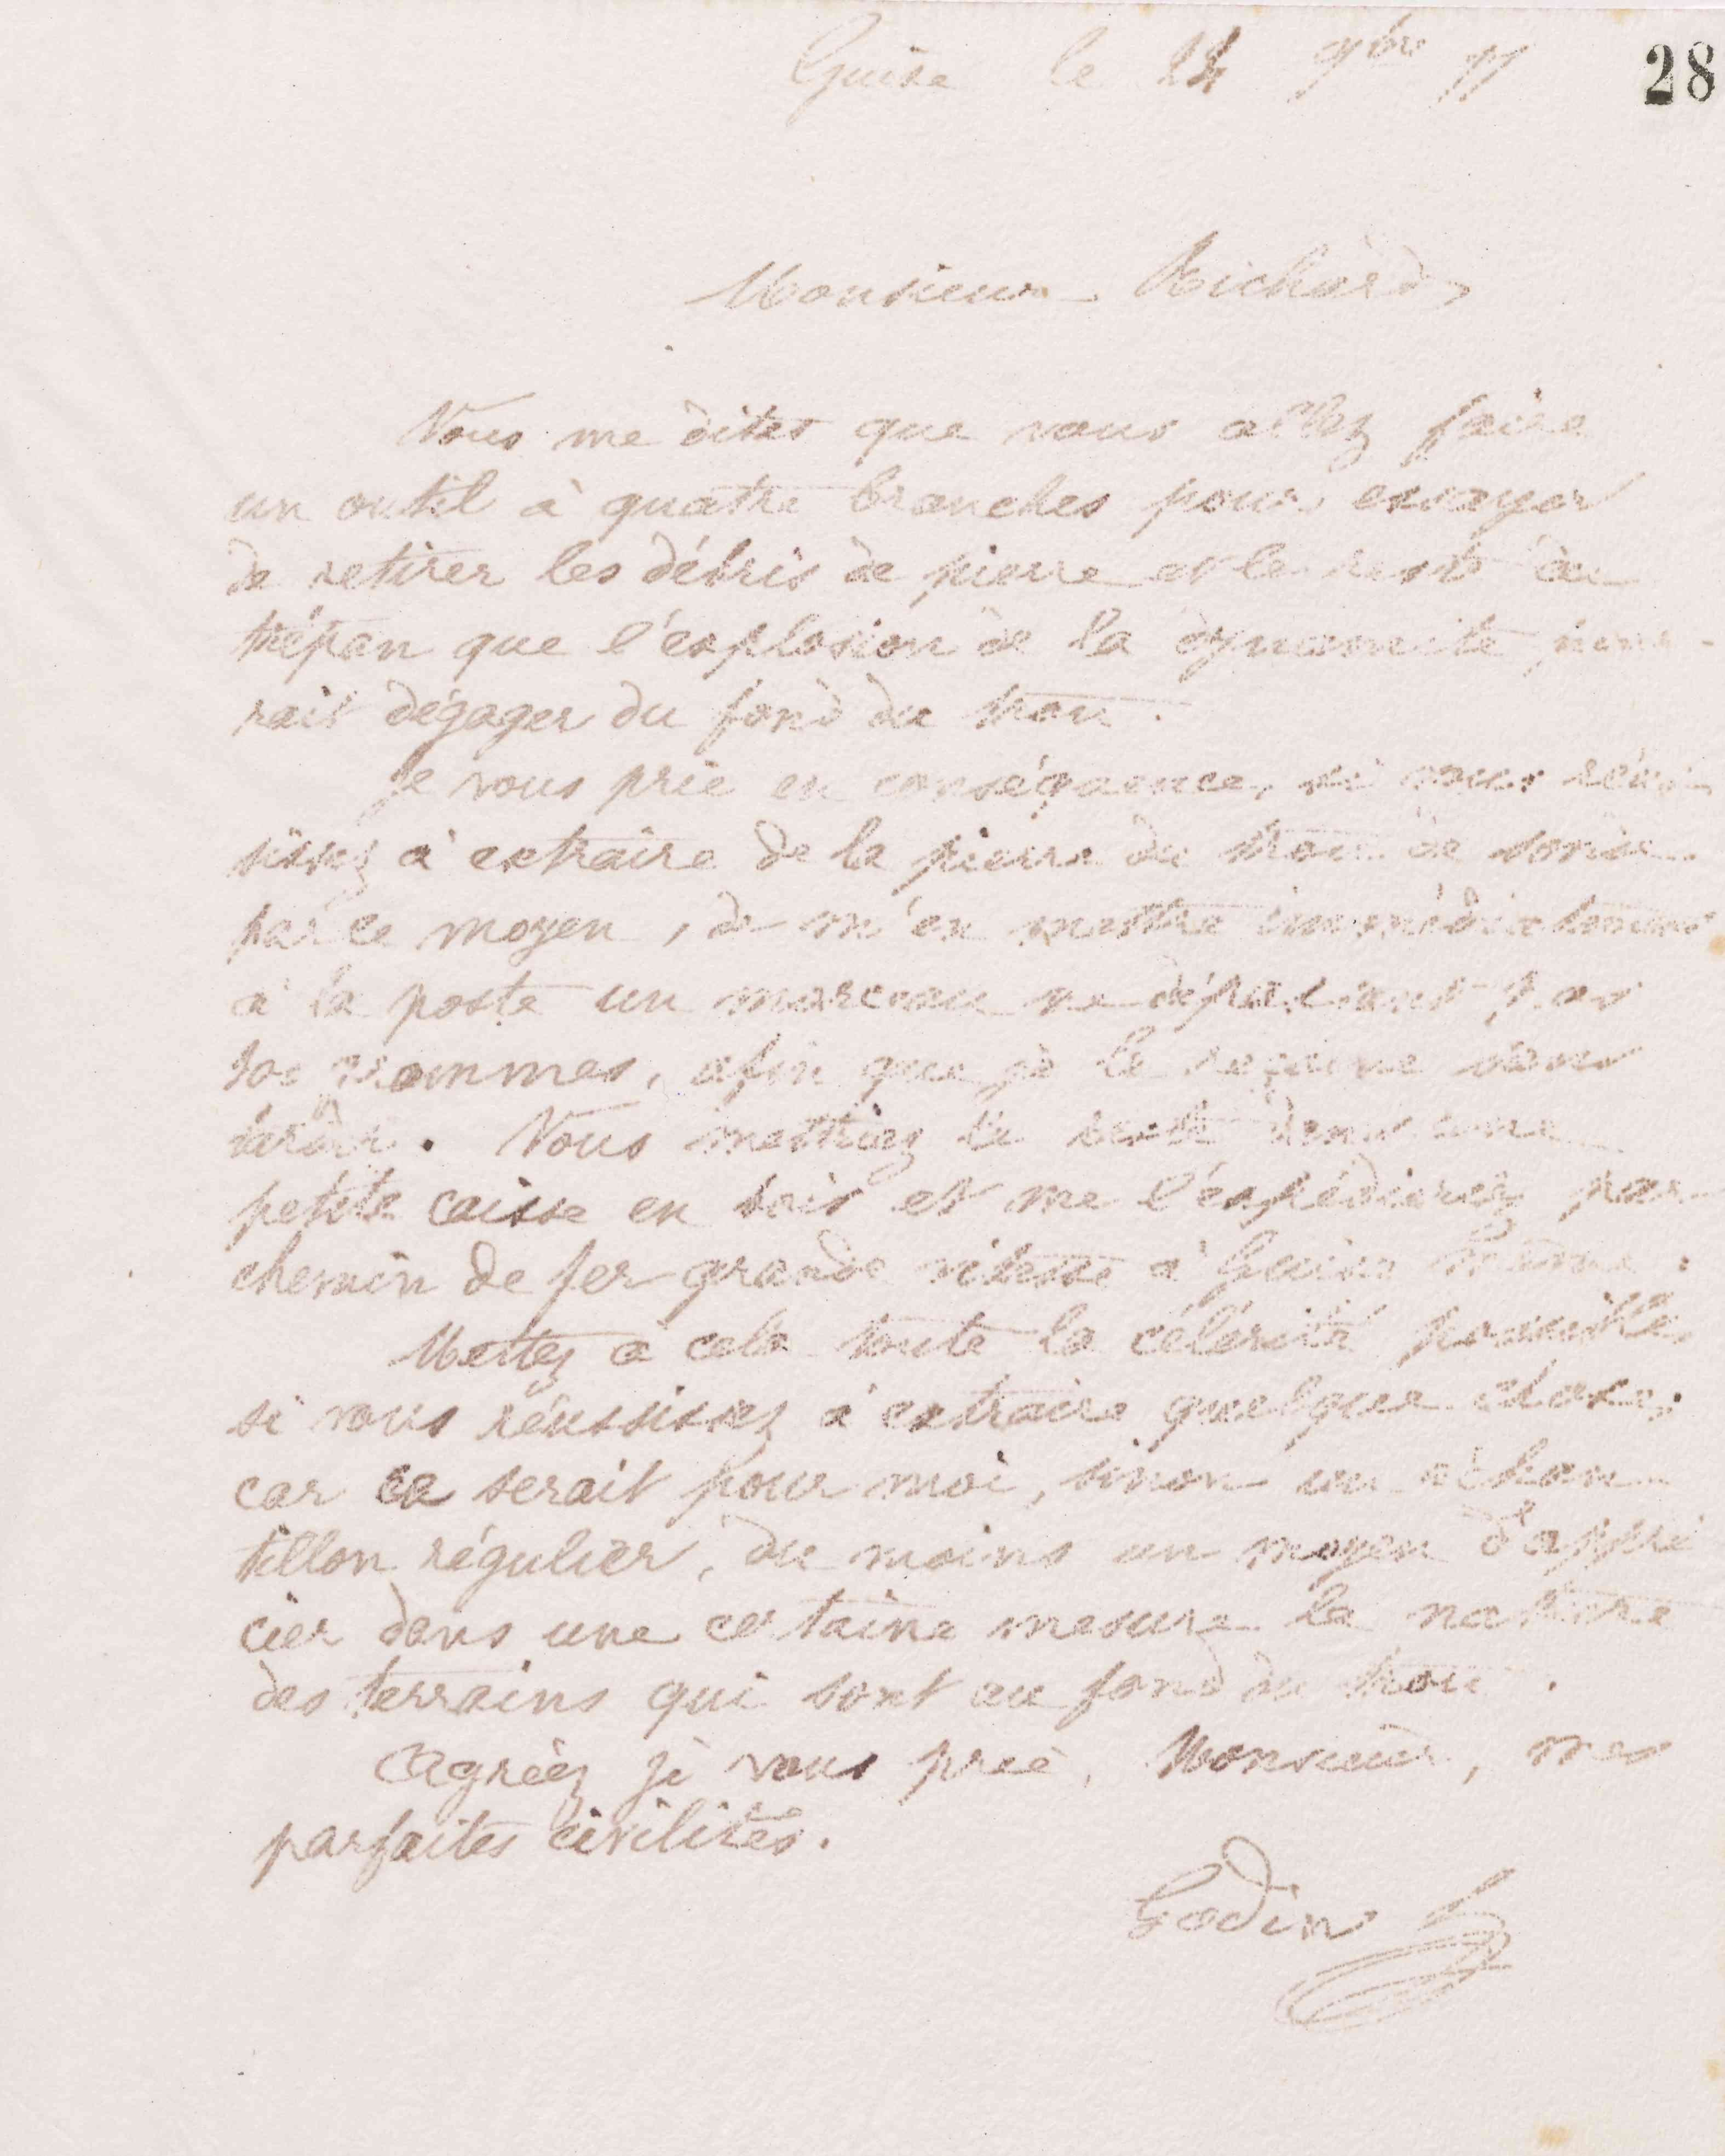 Guise le 24 9bre 77
28
Monsieur Richard,
Vous me dites que vous allez faire
un outil à quatre branches pour essayer
de retirer les débris de pierre et le reste du
trépan que l'explosion de la dynamite pour-
rait dégager du fond du trou.
Je vous prie en conséquence, si vous réus-
sissez à extraire de la pierre du trou de sonde
par ce moyen, de m'en mettre immédiatement
à la poste un morceau ne dépassant pas
grammes, afin que je le reçoive sans
tarder. Vous mettriez le reste dans une
petite caisse en bois et me l'expédieriez par
chemin de fer grande vitesse à Guise
Mettez à cela toute la célérité possible,
si vous réussissez à extraire quelque chose;
car ce serait pour moi, sinon un échan
tillon régulier, du moins un moyen d'appré
cier dans une certaine mesure la nature
des terrains qui sont au fond du trou.
Agréez je vous prie, Monsieur, mes
parfaites civilités.
Godin